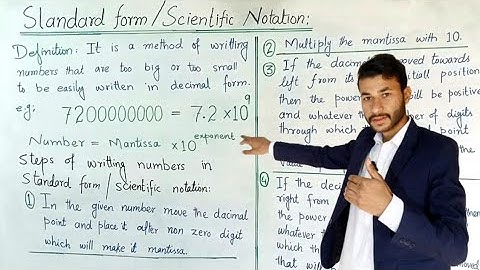 Standard form / Scientific Notation:
Definition: It is a method of writting
numbers that are too big or too small
to be easily written in decimal form.
eg: 7200000000 = 7.2 × 10⁹
Number = Mantissa × 10^exponent
Steps of writting numbers in
Standard form / scientific notation:
① In the given number move the dacimal
point and place it after non zero digit
which will make it mantissa.
② Multiply the mantissa with 10.
③ If the dacimal moved towards
left from its position
then the power will be positive
and whatever the number of digits
through which
④ If the deci
right from
the power
whatever
which th
that will